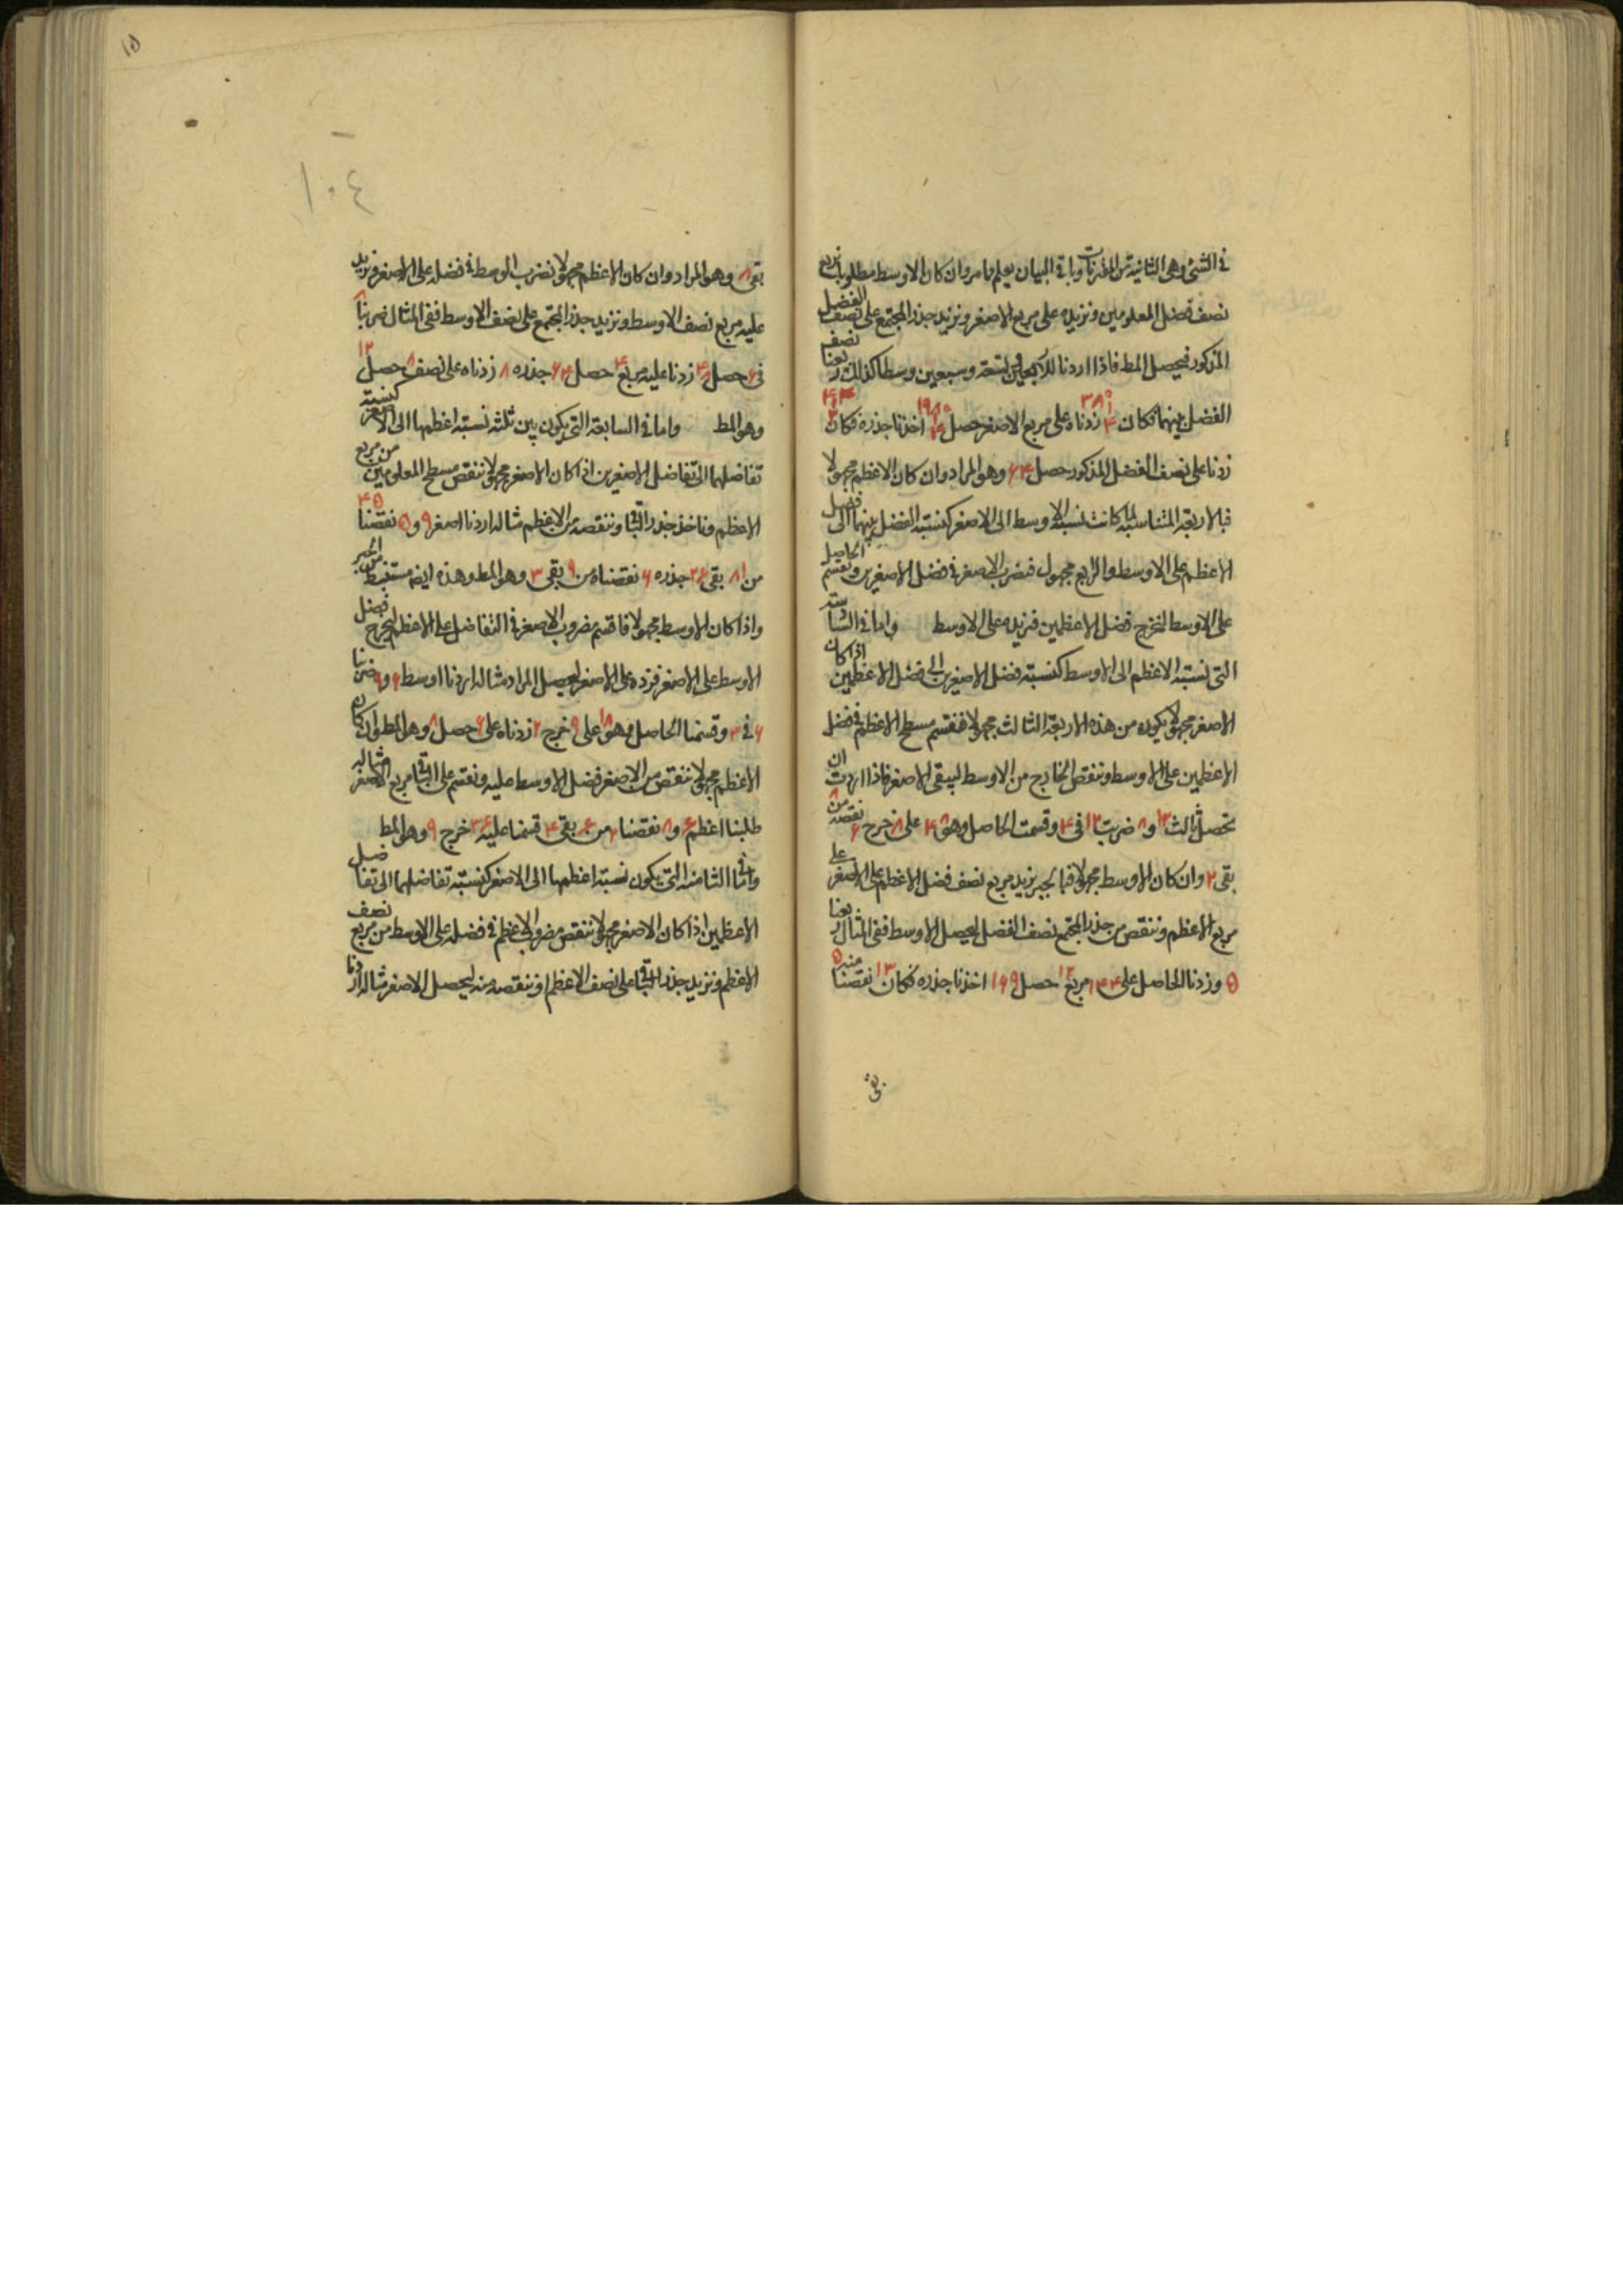 في الشئ وهي الثانية من المقترنات وباقي البيان يعلم مما مر وان كان الاوسط مطلوبا نربع
نصف فضل المعلومين ونزيده على مربع الاصغر ونزيد جذر المجتمع على نصف الفضل
المذكور فيحصل المط فاذا اردنا لسبعين وسطا كذلك ربعنا نصف
الفضل بينهما فكان زدناه على مربع الاصغر حصل اخذنا جذره فكان
زدنا على نصف الفضل المذكور حصل ۶۴ وهو المراد وان كان الاعظم مجهولا
فبالاربعة المتناسبة لما كانت نسبة الاوسط الى الاصغر كنسبة الفضل بينهما الى فضل
الاعظم على الاوسط والرابع مجهول فنضرب الاصغر في فضل الاصغرين ونقسم الحاصل
على الاوسط لنخرج فضل الاعظمين فنزيده على الاوسط واما في السادسة
التي نسبة الاعظم الى الاوسط كنسبة فضل الاصغرين الى فضل الاعظمين اذا كان
الاصغر مجهولا يكون من هذه الاربعة الثالث مجهولا فنقسم مسطح الاعظم في فضل
الاعظمين على الاوسط وننقص الخارج من الاوسط ليبقى الاصغر فاذا اردت ان
تحصل ثالث ۱۲ و ۸ ضربت ۱۲ في ۴ وقسمت الحاصل وهو ۴۸ على ۸ خرج ۶ نقصته من ۸
بقى ۲ وان كان الاوسط مجهولا فبالجبر يزيد مربع نصف فضل الاعظم على الاصغر على
مربع الاعظم وننقص من جذر المجتمع نصف الفضل ليحصل الاوسط ففي المثال ربعنا
۵ وزدنا الحاصل على ۱۴۴ مربع ۱۲ حصل ۱۶۹ اخذنا جذره فكان ۱۳ نقصنا منه ۵
بقى
۱۰٤
بقى ۸ وهو المراد وان كان الاعظم مجهولا نضرب الوسط في فضله على الاصغر ونزيد
عليه مربع نصف الاوسط ونزيد جذر المجتمع على نصف الاوسط ففي المثال ضربنا ۸
في ۶ حصل ۴۸ زدنا عليه مربع ۴ حصل ۶۴ جذره ۸ زدناه على نصف ۸ حصل ۱۲
وهو المط واما في السابعة التي يكون بين ثلثة نسبة اعظمها الى الاصغر كنسبة
تفاضلهما الى تفاضل الاصغرين اذا كان الاصغر مجهولا ننقص مسطح المعلومين من مربع
الاعظم وناخذ جذر الباقي وننقصه من الاعظم مثاله اردنا اصغر ۹ و ۵ نقصنا ۴۵
من ۸۱ بقى ۳۶ جذره ۶ نقصناه من ۹ بقى ۳ وهو المط وهذه ايضا مستنبط من الجبر
واذا كان الاوسط مجهولا فاقسم مضروب الاصغر في التفاضل على الاعظم ليخرج فضل
الاوسط على الاصغر فزده على الاصغر ليحصل المراد مثاله اردنا اوسط ۶ و ۹ ضربنا
۶ في ۳ وقسمنا الحاصل وهو ۱۸ على ۹ خرج ۲ زدناه على ۶ حصل ۸ وهو المط وان كان
الاعظم مجهولا ننقص من الاصغر فضل الاوسط عليه ونقسم على الباقي مربع الاصغر مثاله
طلبنا اعظم ۶ و ۸ نقصنا ۲ من ۶ بقى ۴ قسمنا عليه ۳۶ خرج ۹ وهو المط
واما في الثامنة التي يكون نسبة اعظمها الى الاصغر كنسبة تفاضلهما الى تفاضل
الاعظمين اذا كان الاصغر مجهولا ننقص مضروب الاعظم في فضله على الاوسط من مربع نصف
الاعظم ونزيد جذر الباقي على نصف الاعظم او ننقصه منه ليحصل الاصغر مثاله اردنا